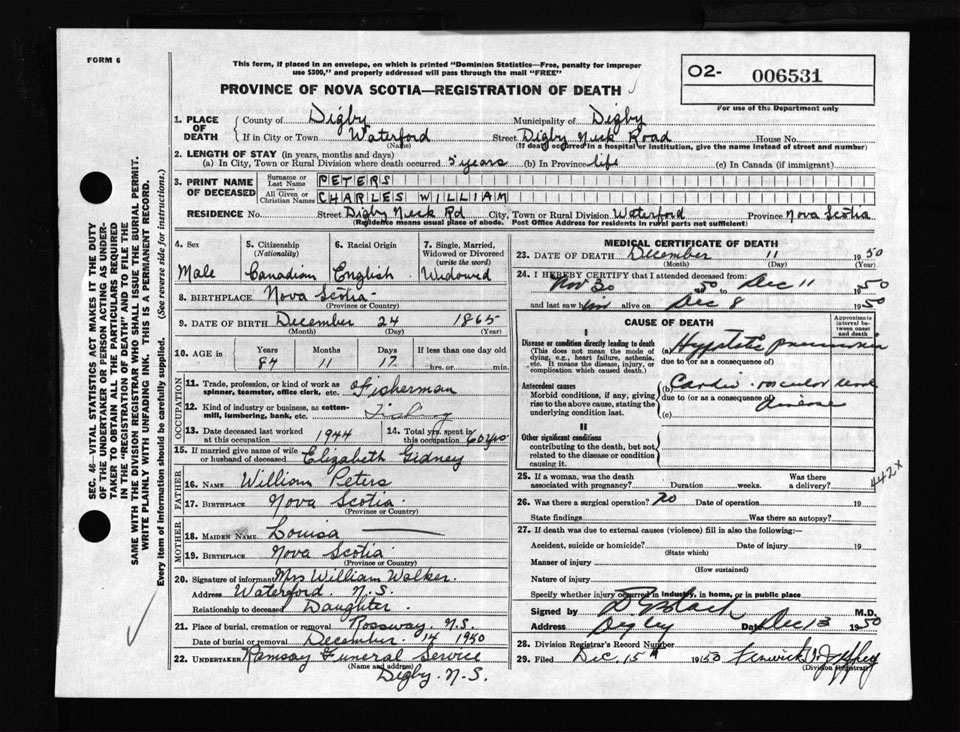 FORM 6
This form, if placed in an envelope, on which is printed "Dominion Statistics—Free, penalty for improper
use $300," and properly addressed will pass through the mail "FREE"
PROVINCE OF NOVA SCOTIA—REGISTRATION OF DEATH
O2- 006531
For use of the Department only
1. PLACE OF DEATH
County of Digby Municipality of Digby
If in City or Town Waterford Street Digby Neck Road House No.
(Name) (If death occurred in a hospital or institution, give the name instead of street and number)
2. LENGTH OF STAY (in years, months and days)
(a) In City, Town or Rural Division where death occurred 5 years (b) In Province life (c) In Canada (if immigrant)
3. PRINT NAME OF DECEASED
Surname or Last Name PETERS
All Given or Christian Names CHARLES WILLIAM
RESIDENCE No. Street Digby Neck Rd City, Town or Rural Division Waterford Province Nova Scotia
(Residence means usual place of abode. Post Office Address for residents in rural parts not sufficient)
4. Sex 5. Citizenship (Nationality) 6. Racial Origin 7. Single, Married, Widowed or Divorced (write the word)
Male Canadian English Widowed
8. BIRTHPLACE Nova Scotia
(Province or Country)
9. DATE OF BIRTH December 24 1865
(Month) (Day) (Year)
10. AGE in Years Months Days If less than one day old
84 11 17 hrs. or min.
OCCUPATION
11. Trade, profession, or kind of work as spinner, teamster, office clerk, etc. Fisherman
12. Kind of industry or business, as cotton-mill, lumbering, bank, etc. Fishing
13. Date deceased last worked at this occupation 1944 14. Total yrs. spent in this occupation 60 yrs
15. If married give name of wife or husband of deceased Elizabeth Gidney
FATHER
16. NAME William Peters
17. BIRTHPLACE Nova Scotia
(Province or Country)
MOTHER
18. MAIDEN NAME Louisa
19. BIRTHPLACE Nova Scotia
(Province or Country)
20. Signature of informant Mrs William Walker.
Address Waterford. N.S.
Relationship to deceased Daughter.
21. Place of burial, cremation or removal Rossway. N.S.
Date of burial or removal December. 14 1950
22. UNDERTAKER Ramsay Funeral Service
(Name and address)
Digby. N.S.
MEDICAL CERTIFICATE OF DEATH
23. DATE OF DEATH December 11 1950
(Month) (Day) (Year)
24. I HEREBY CERTIFY that I attended deceased from:
Nov 30 50 to Dec 11 1950
and last saw him alive on Dec 8 1950
CAUSE OF DEATH
Approximate interval between onset and death
I
Disease or condition directly leading to death
(This does not mean the mode of dying, e.g., heart failure, asthenia, etc. It means the disease, injury, or complication which caused death.)
(a) Hypostatic pneumonia
due to (or as a consequence of)
Antecedent causes
Morbid conditions, if any, giving rise to the above cause, stating the underlying condition last.
(b) Cardio-vascular renal
due to (or as a consequence of)
disease
(c)
II
Other significant conditions
contributing to the death, but not related to the disease or condition causing it.
442x
25. If a woman, was the death associated with pregnancy? Duration weeks. Was there a delivery?
26. Was there a surgical operation? no Date of operation 19
State findings Was there an autopsy?
27. If death was due to external causes (violence) fill in also the following:—
Accident, suicide or homicide? Date of injury 19
(State which)
Manner of injury
(How sustained)
Nature of injury
Specify whether injury occurred in industry, in home, or in public place
Signed by M.D.
Address Digby Date Dec 13 1950
28. Division Registrar's Record Number
29. Filed Dec. 15th 1950 Fenwick
(Division Registrar)
SEC. 46—VITAL STATISTICS ACT MAKES IT THE DUTY
OF THE UNDERTAKER OR PERSON ACTING AS UNDER-
TAKER TO OBTAIN ALL THE PARTICULARS REQUIRED
IN THE "REGISTRATION OF DEATH" AND TO FILE THE
SAME WITH THE DIVISION REGISTRAR WHO SHALL ISSUE THE BURIAL PERMIT.
WRITE PLAINLY WITH UNFADING INK. THIS IS A PERMANENT RECORD.
Every item of information should be carefully supplied. (See reverse side for instructions.)